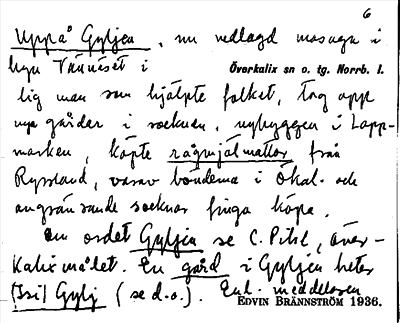 6
Uppå Gyljen, nu nedlagd masugn i
byn Vännäset i Överkalix sn o. tg. Norrb. l.
lig man som hjälpte folket, tog upp
nya gårder i socknen, nybyggen i Lapp-
marken, köpte rågmjölmattor från
Ryssland, varav bönderna i Ökal. och
angränsande socknar finga köpa.
Om ordet Gyljen se C. Pihl, Över-
kalixmålet. En gård i Gyljen heter
(Isi) Gylj (se d.o.). Enl. meddelaren
EDVIN BRÄNNSTRÖM 1936.